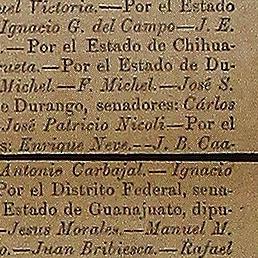 uel Victoria.—Por el Estado
Ignacio G. del Campo—J. E.
.—Por el Estado de Chihua-
rueta.—Por el Estado de Du-
Michel.—F. Michel.—José S.
e Durango, senadores: Cárlos
José Patricio Nicoli—Por el
s: Enrique Neve.—J. B. Caa-
Antonio Carbajal.—Ignacio
Por el Distrito Federal, sena-
Estado de Guanajuato, dipu-
—Jesus Morales.—Manuel M.
o.—Juan Bribiesca.—Rafael